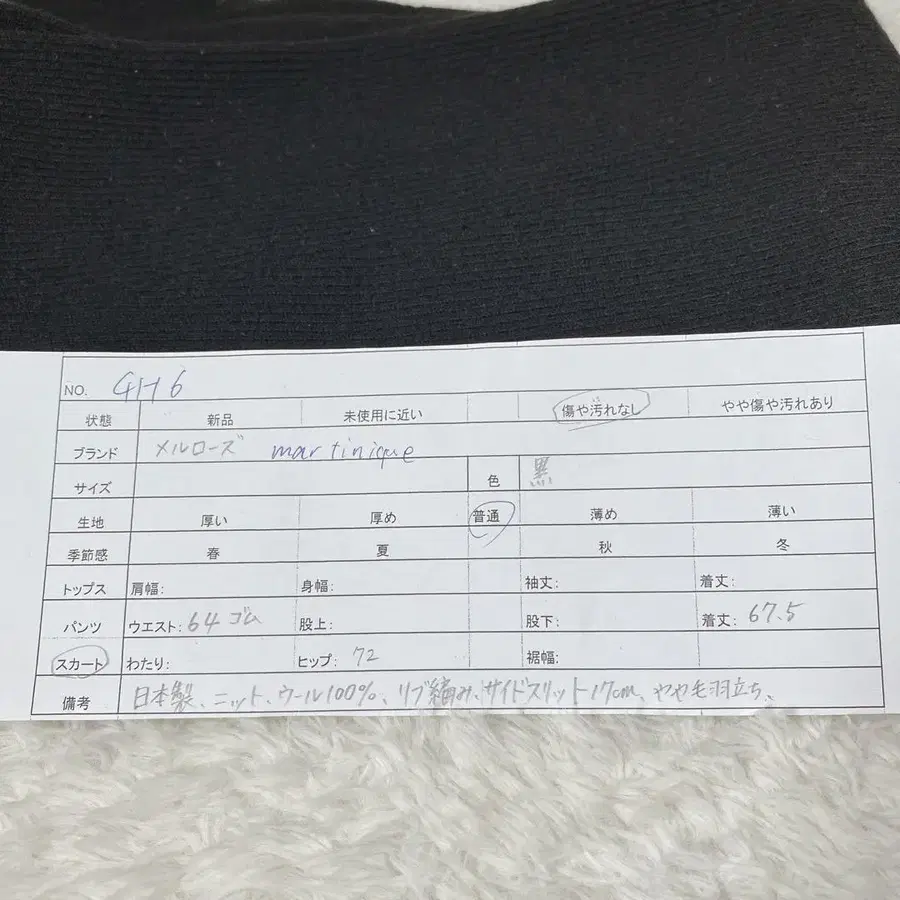 NO. GH6
状態 新品 未使用に近い 傷や汚れなし やや傷や汚れあり
ブランド メルローズ martinique
サイズ 色 黒
生地 厚い 厚め 普通 薄め 薄い
季節感 春 夏 秋 冬
トップス 肩幅: 身幅: 袖丈: 着丈:
パンツ ウエスト: 64 ゴム 股上: 股下: 着丈: 67.5
スカート わたり: ヒップ: 72 裾幅:
備考 日本製、ニット、ウール100%、リブ編み、サイドスリット17cm、やや毛羽立ち、